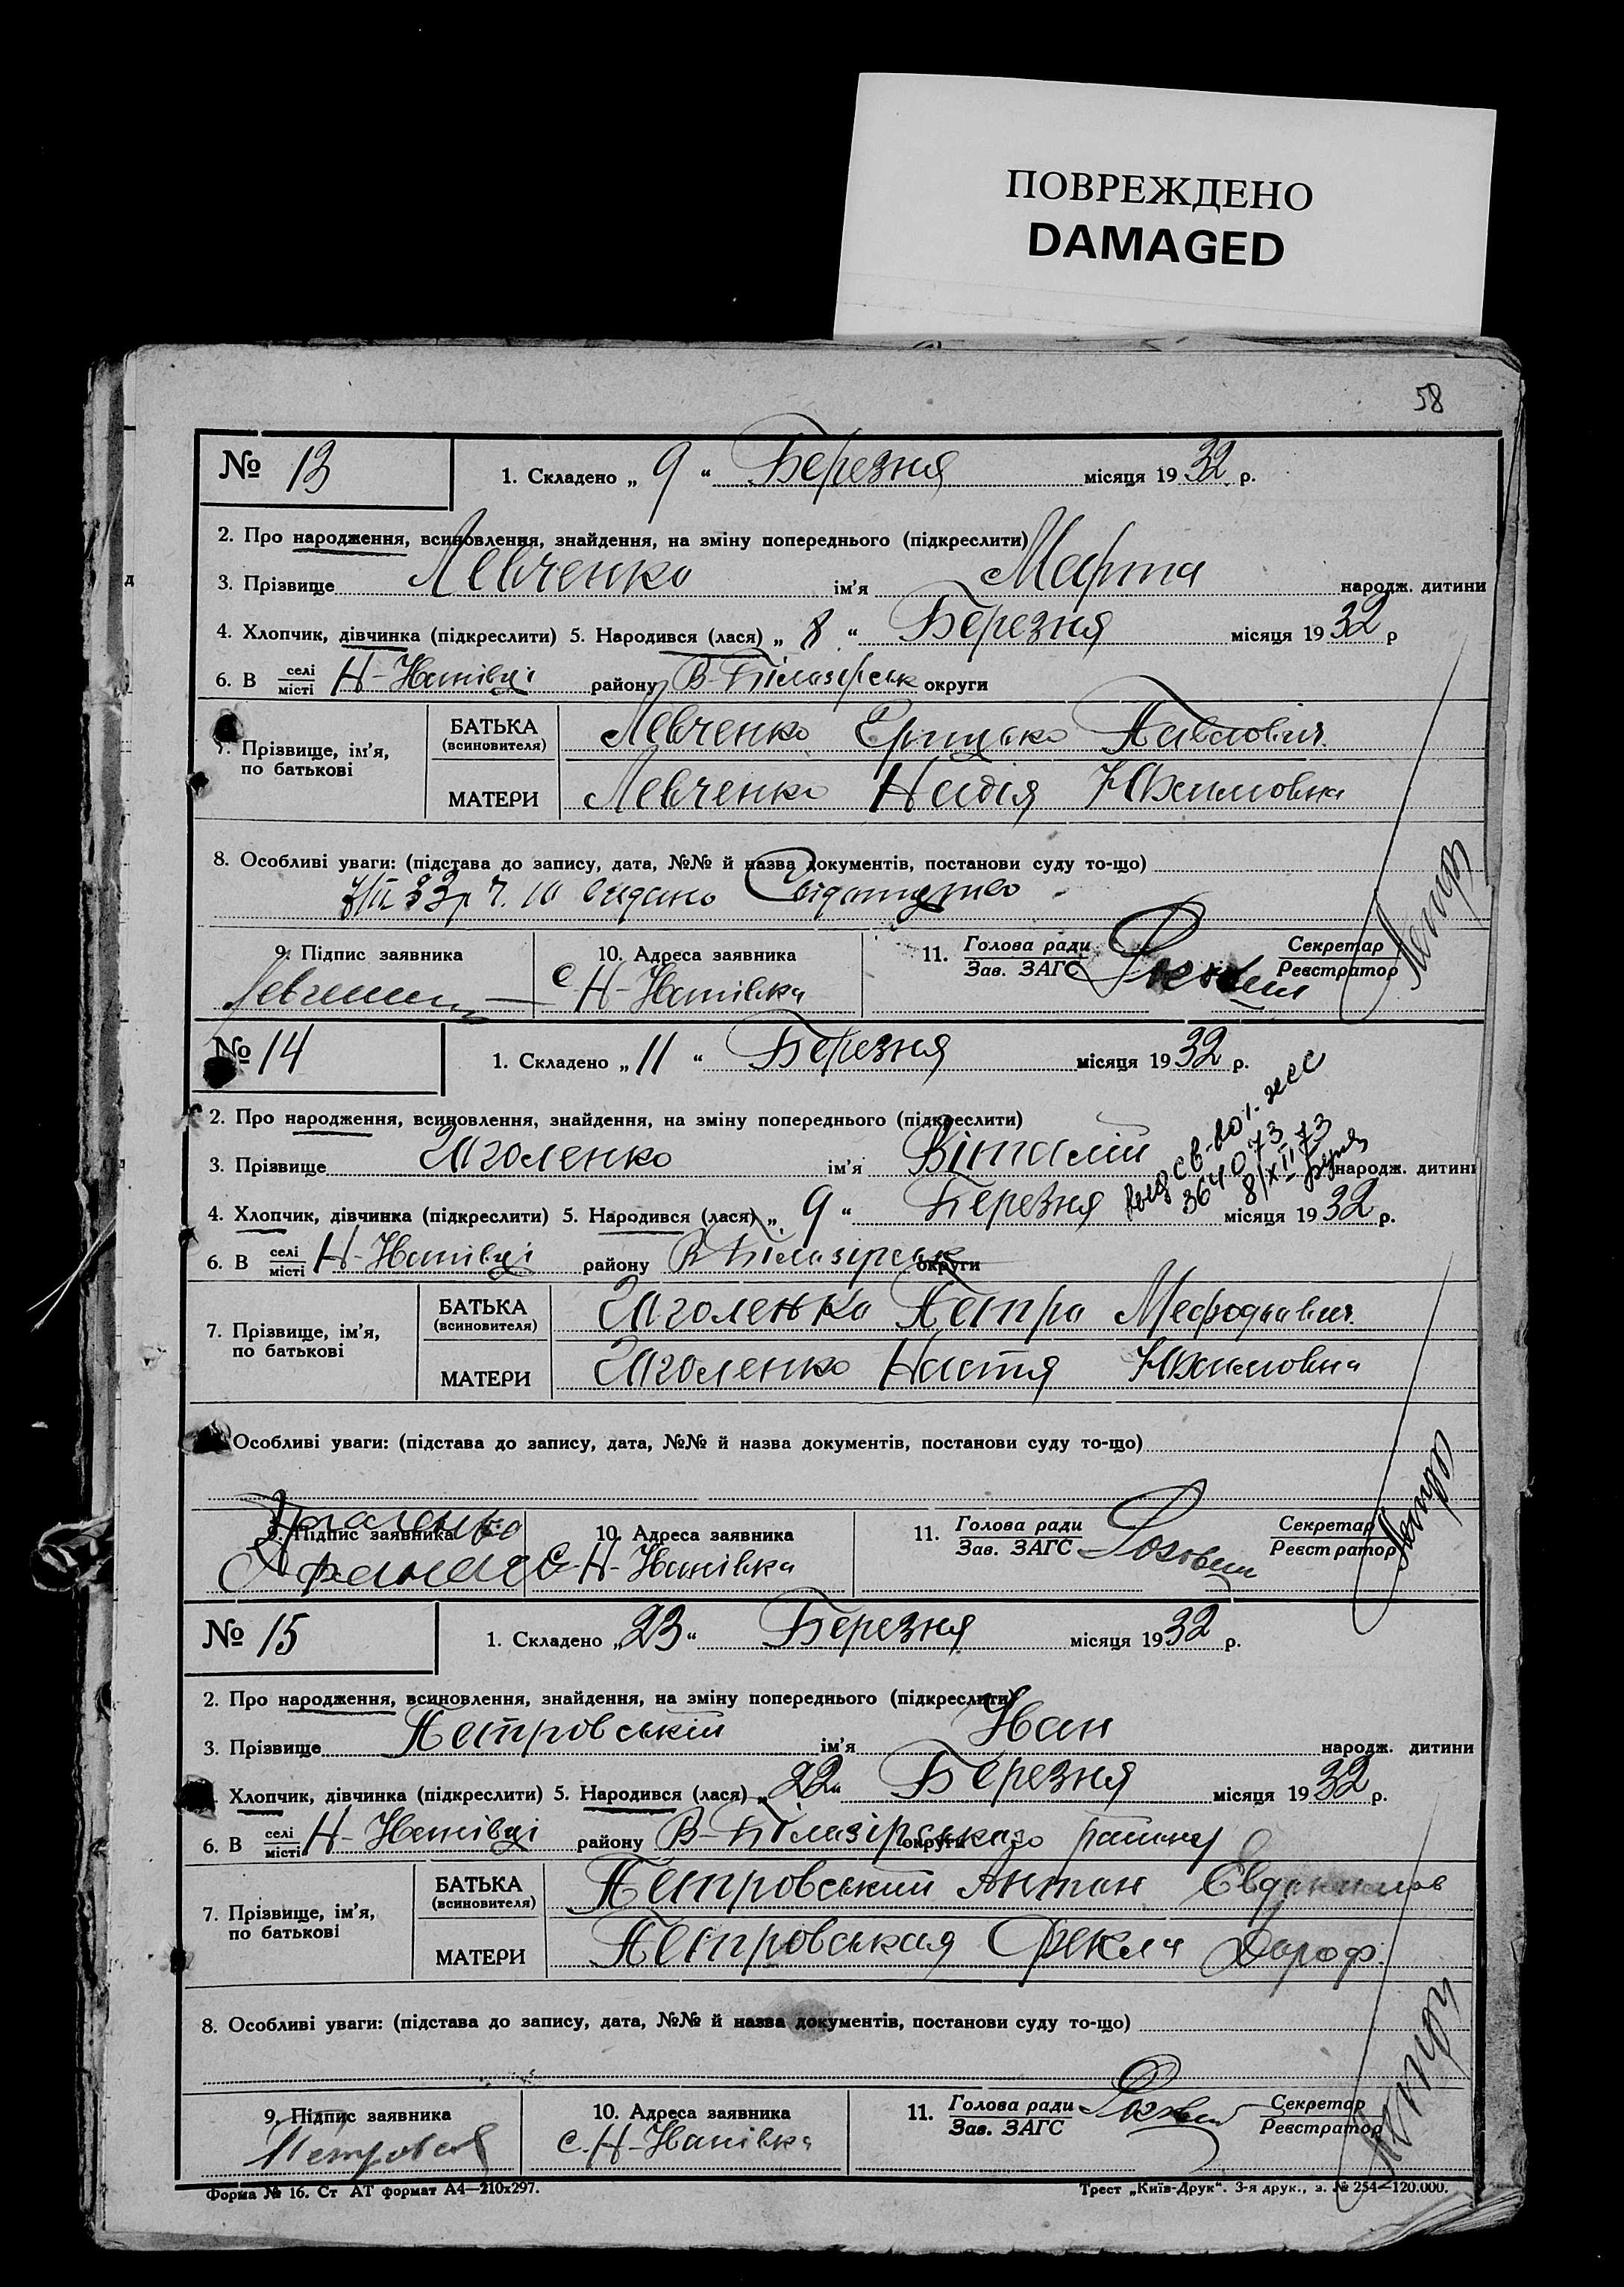 ПОВРЕЖДЕНО
DAMAGED
58
№ 13 1. Складено „ 9 “ Березня місяця 1932 р.
2. Про народження, всиновлення, знайдення, на зміну попереднього (підкреслити)
3. Прізвище Левченко ім'я Марта народж. дитини
4. Хлопчик, дівчинка (підкреслити) 5. Народився (лася) „ 8 “ Березня місяця 1932 р
6. В селі місті Н-Іванівці району В-Білазірськ округи
7. Прізвище, ім'я, по батькові
БАТЬКА (всиновителя) Левченко Грицько Павлович
МАТЕРИ Левченко Надія Юхимовна
8. Особливі уваги: (підстава до запису, дата, №№ й назва документів, постанови суду то-що)
видано Свідоцтво
9. Підпис заявника 10. Адреса заявника 11. Голова ради Зав. ЗАГС Секретар Реєстратор
Левченко с Н-Іванівка
№ 14 1. Складено „ 11 “ Березня місяця 1932 р.
2. Про народження, всиновлення, знайдення, на зміну попереднього (підкреслити)
3. Прізвище Иголенко ім'я Віталій народж. дитини
4. Хлопчик, дівчинка (підкреслити) 5. Народився (лася) „ 9 “ Березня місяця 1932 р.
6. В селі місті Н-Іванівці району В-Білазірськ округи
7. Прізвище, ім'я, по батькові
БАТЬКА (всиновителя) Иголенко Петро Мефодьович
МАТЕРИ Иголенко Настя Юхимовна
Особливі уваги: (підстава до запису, дата, №№ й назва документів, постанови суду то-що)
9. Підпис заявника 10. Адреса заявника 11. Голова ради Зав. ЗАГС Секретар Реєстратор
с-Н-Іванівка
№ 15 1. Складено „23“ Березня місяця 1932 р.
2. Про народження, всиновлення, знайдення, на зміну попереднього (підкреслити)
3. Прізвище Петровський ім'я Иван народж. дитини
Хлопчик, дівчинка (підкреслити) 5. Народився (лася) „22“ Березня місяця 1932 р.
6. В селі місті Н-Іванівці району В-Білазірського округи району
7. Прізвище, ім'я, по батькові
БАТЬКА (всиновителя) Петровський Антон Евдокимов
МАТЕРИ Петровськая Фекла Дороф.
8. Особливі уваги: (підстава до запису, дата, №№ й назва документів, постанови суду то-що)
9. Підпис заявника 10. Адреса заявника 11. Голова ради Зав. ЗАГС Секретар Реєстратор
с. Н-Іванівка
Форма № 16. Ст АТ формат А4—210х297. Трест „Київ-Друк“. 3-я друк., з. № 254—120.000.